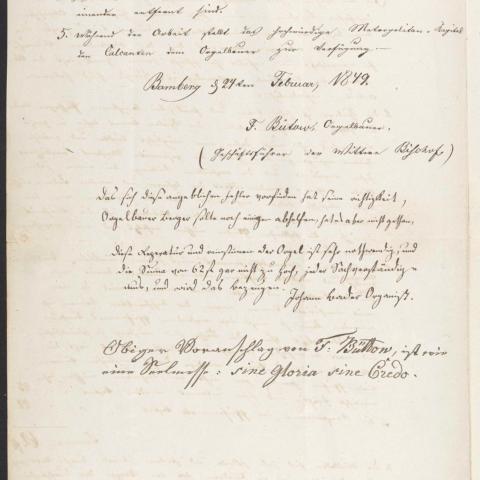 einander entfernt sind.
5. Während der Arbeit stellt das hochwürdige Metropolitan-Kapitel
den Calcanten dem Orgelbauer zur Verfügung. —
Bamberg d 24ten Februar, 1849.
F. Bütow, Orgelbauer.
(Geschäftsführer der Wittwe Bischof)
Das sich diese angeblichen Fehler vorfinden hat seine richtigkeit,
Orgelbauer Berger sollte noch einigen abhelfen, hat es aber nicht gethan,
diese Reperatur und einstimen der Orgel ist sehr nothwendig, und
die Suma von 62 f gar nicht zu hoch, jeder Sachverständige
muß, und wird das bezeigen.
Johann Bader Organist.
Obiger Voranschlag von F. Büttow, ist wie
eine Seelmesse: sine Gloria sine Credo.